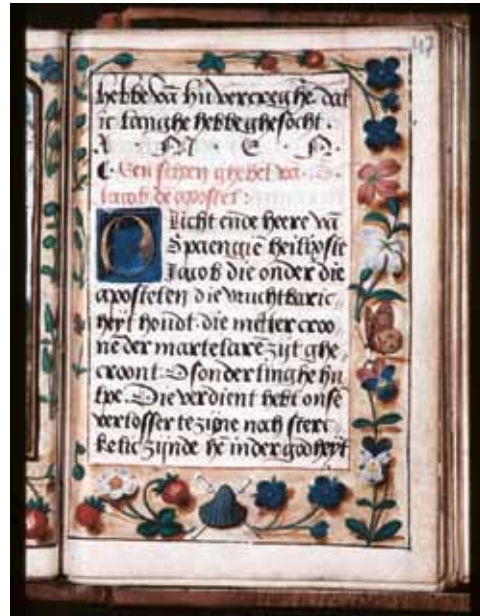 47
hebbe vā hu vercreghe. dat
ic langhe hebbe ghesocht.
A M E N.
Een schoon ghebet vā S.
Jacob de apostel:
O Licht ende heere vā
Spaengiē heilichste
Jacob die onder die
apostelen die vruchtbaric„
heyt houdt. die metter croo„
nē der martelarē zijt ghe„
croont. O sonderlinghe hu„
lpe. Die verdient hebt onsē
verlosser te ziene nach sterc„
kelic zijnde hē in der godheyt